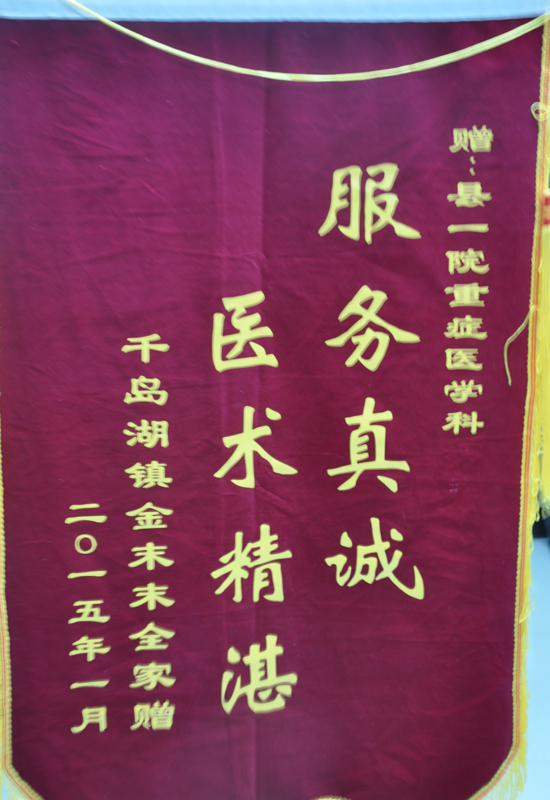 赠:县一院重症医学科
服务真诚
医术精湛
千岛湖镇金末末全家赠
二〇一五年一月